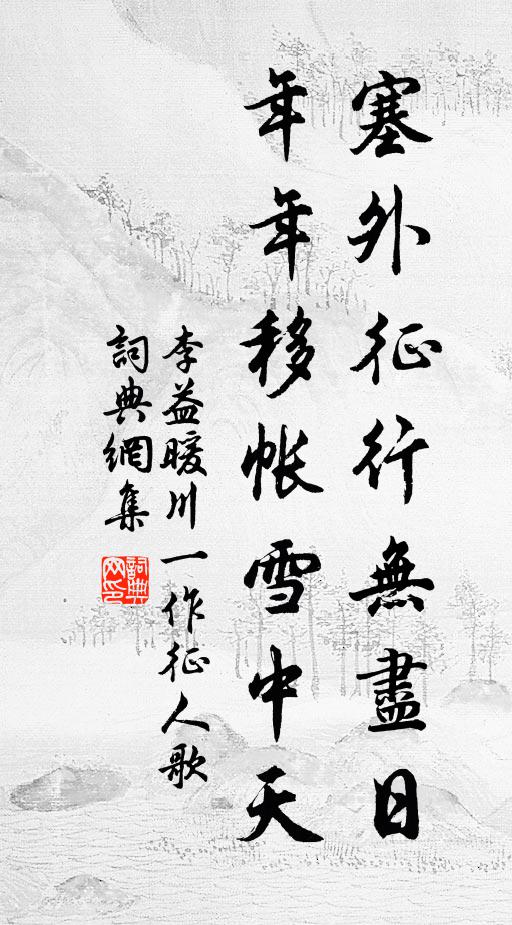 塞外征行無盡日
年年移帳雪中天
李益暖川一作征人歌
詞典網集
詞典网印